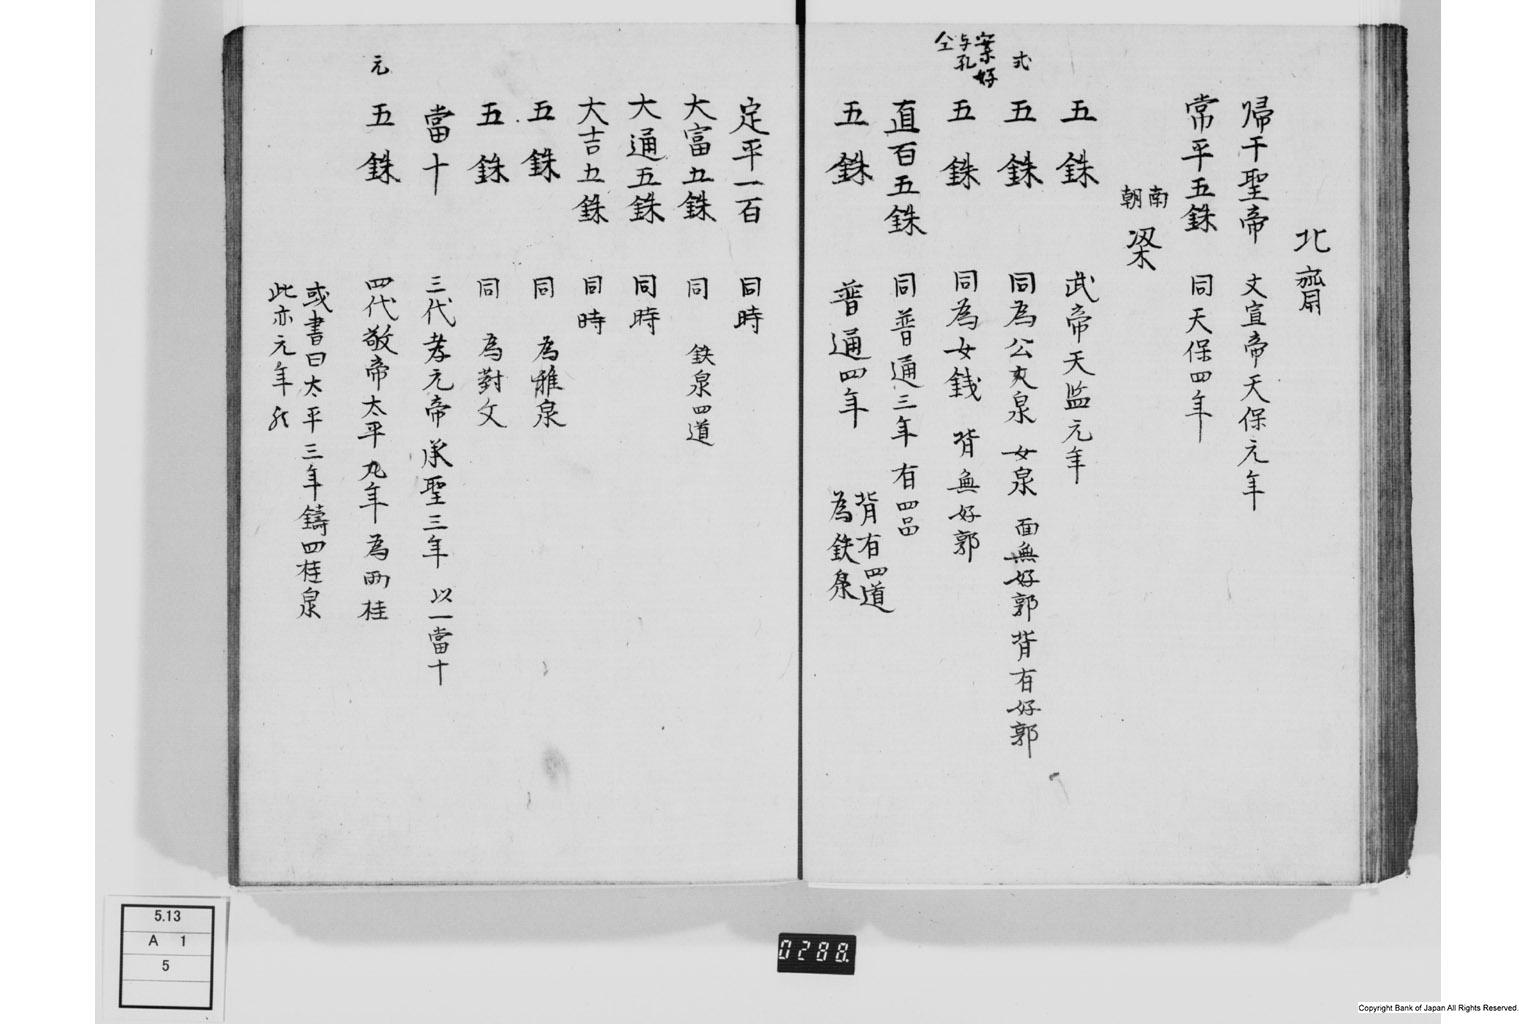 北齊
帰千聖帝 文宣帝天保元年
常平五銖 同天保四年
南朝 梁
五銖 武帝天监元年
式
五銖 同為公文泉 女泉 面無好郭背有好郭
案好与孔仝
五銖 同為女銭 背無好郭
直百五銖 同普通三年有四品
五銖 普通四年 背有四道為鉄泉
定平一百 同時
大富五銖 同 鉄泉四道
大通五銖 同時
大吉五銖 同時
五銖 同 為雅泉
五銖 同 為對文
當十 三代孝元帝承聖三年 以一當十
元
五銖 四代敬帝太平九年 為両柱
或書曰太平三年鑄四柱泉
此亦元年
5.13
A 1
5
0288.
Copyright Bank of Japan All Rights Reserved.